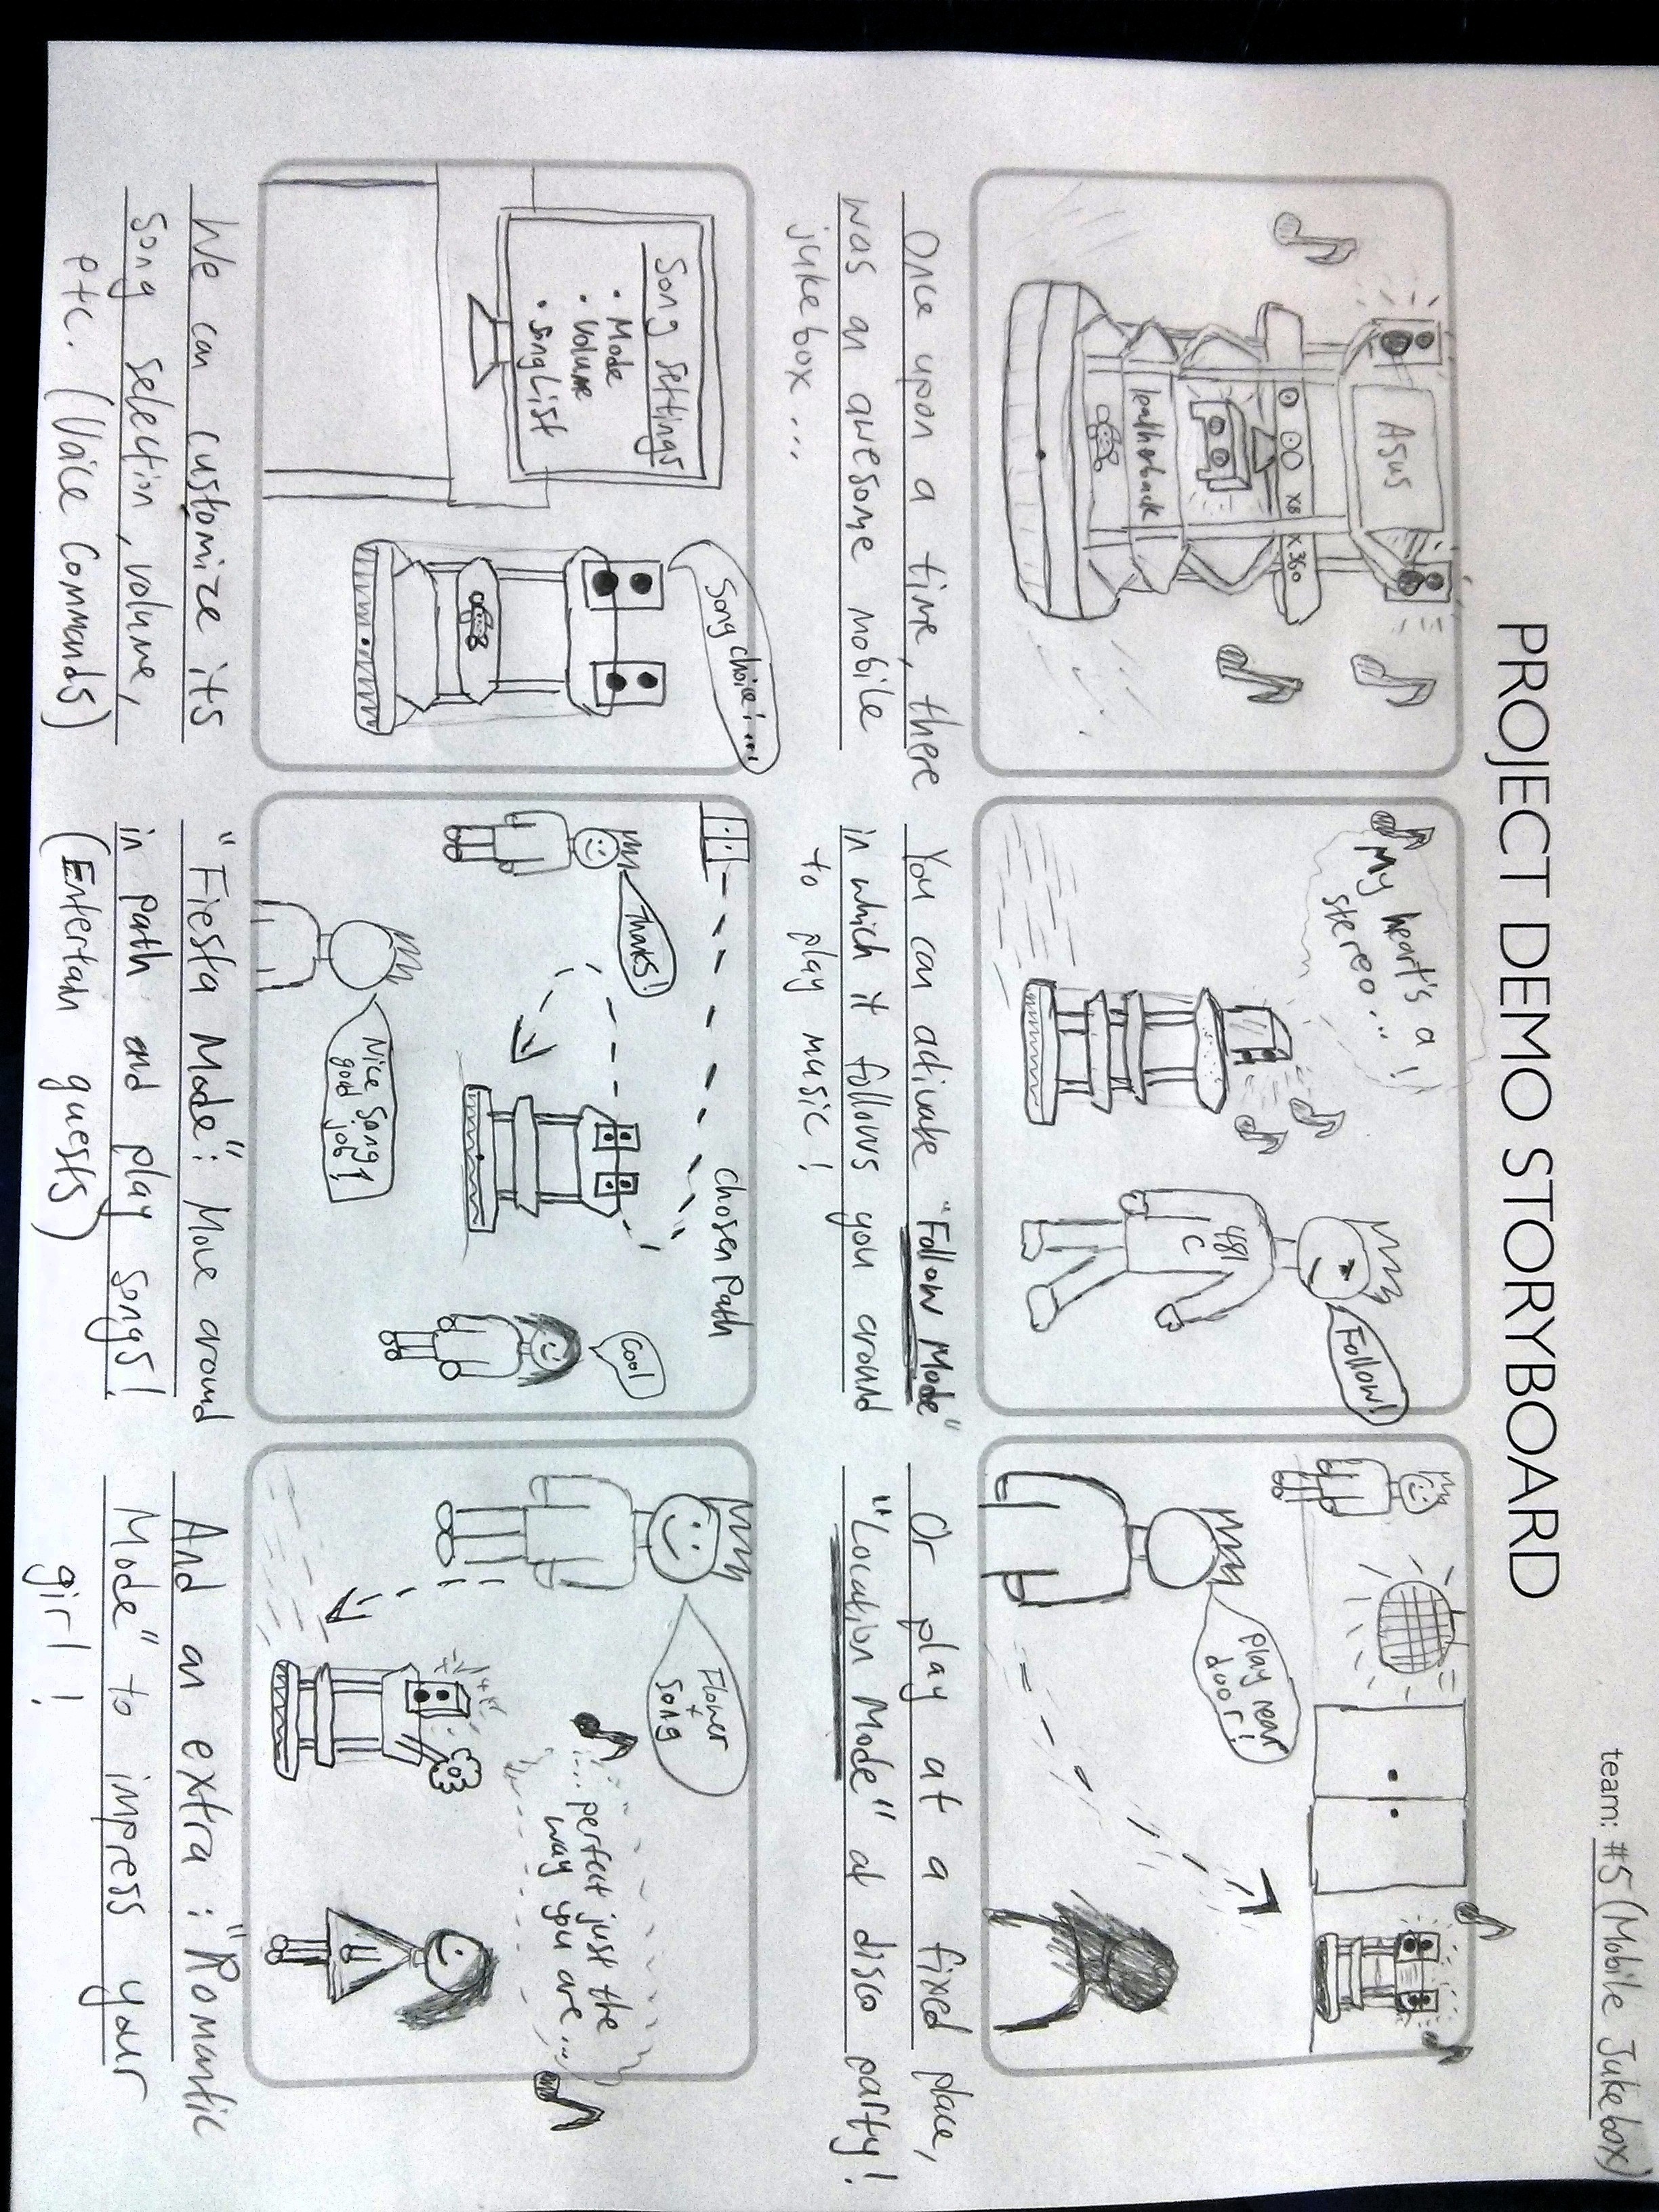 team: #5 (Mobile Jukebox)
PROJECT DEMO STORYBOARD
Asus
XB X360
leatherback
Once upon a time, there
was an awesome mobile
jukebox ...
My heart's a
stereo... !
Follow!
481
C
You can activate "Follow Mode"
in which it follows you around
to play music !
play near
door!
Or play at a fixed place,
"Location Mode" at disco party!
Song choice: ...
Song Settings
• Mode
• Volume
• SongList
We can customize its
song selection, volume,
etc. (Voice Commands)
chosen Path
Thanks!
Cool
Nice Song,
good job!
"Fiesta Mode": Move around
in path and play songs!
(Entertain guests)
Flower
+
Song
... perfect just the
way you are ...
And an extra : "Romantic
Mode" to impress your
girl !